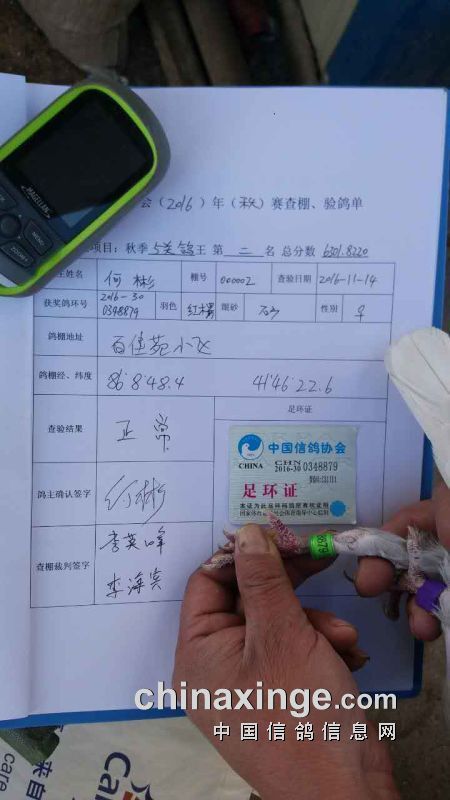 MAGELLAN
MENU
会（2016）年（秋）赛查棚、验鸽单
项目：秋季5关鸽王 第 二 名 总分数 6301.8220
主姓名 何彬 棚号 000002 查验日期 2016-11-14
获奖鸽环号 2016-30 0348879 羽色 眼砂 砂 性别 ♀
鸽棚地址 百佳苑小区
鸽棚经、纬度 86°8′48.4 41°46′22.6
查验结果 正常 足环证
鸽主确认签字 何彬
查棚裁判签字 李英峰
李海宾
中国信鸽协会
CHINA CHN
2016-30 0348879
足环证
chinaxinge.com
中国信鸽信息网